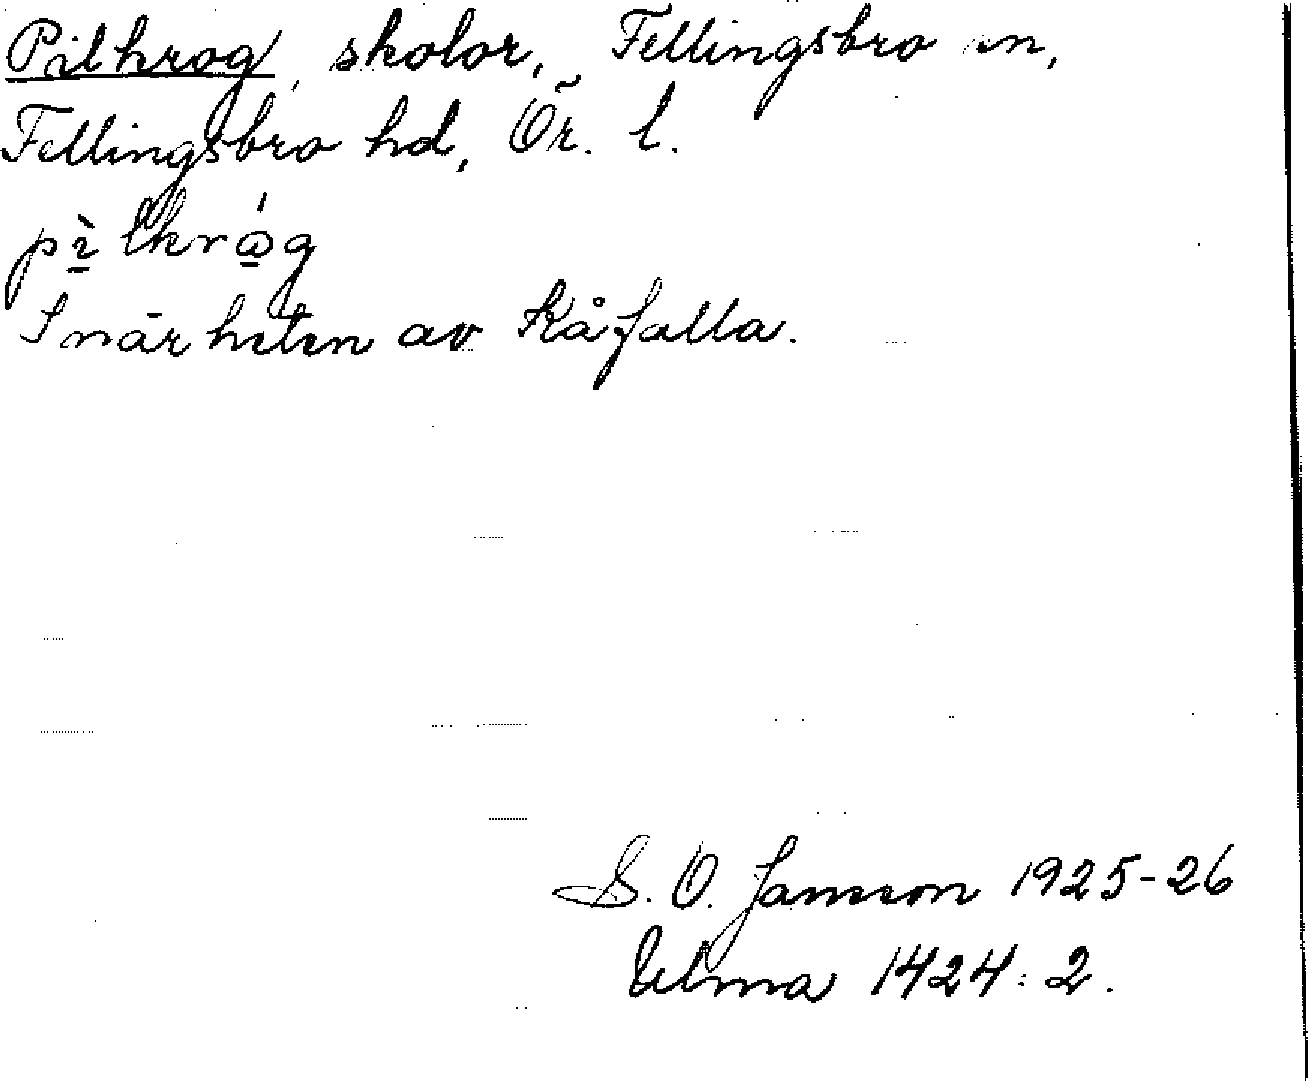 Pilkrog, skolor, Fellingsbro sn,
Fellingsbro hd, Ör. l.
pìlkråg
I närheten av Kåfalla.
S. O. Jansson 1925-26
Ulma 1424:2.